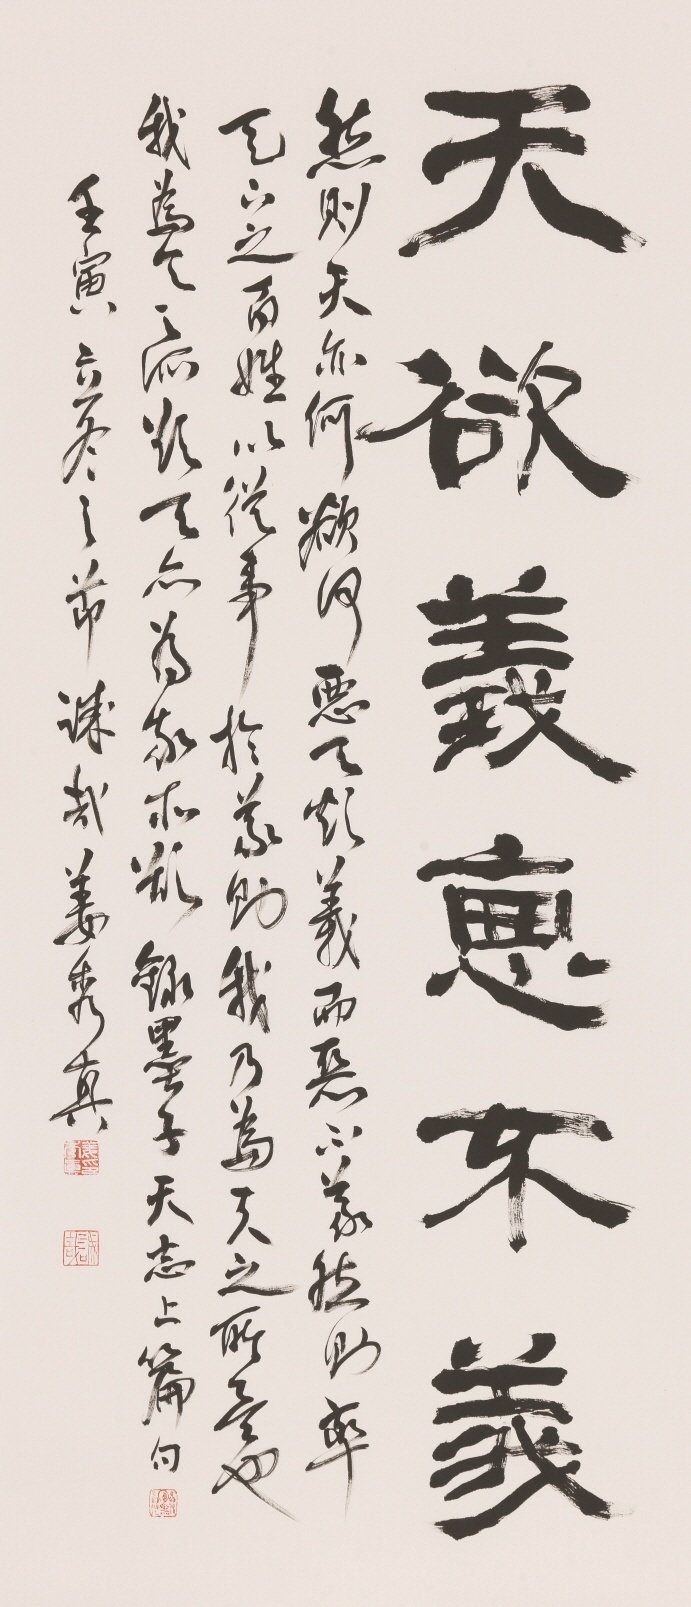 天欲義惡不義
然則天亦何欲何惡天欲義而惡不義然則率
天下之百姓以從事於義則我乃為天之所欲也
我為天之所欲天亦為我所欲 錄墨子天志上篇句
壬寅立冬之節 誠哉姜秀真